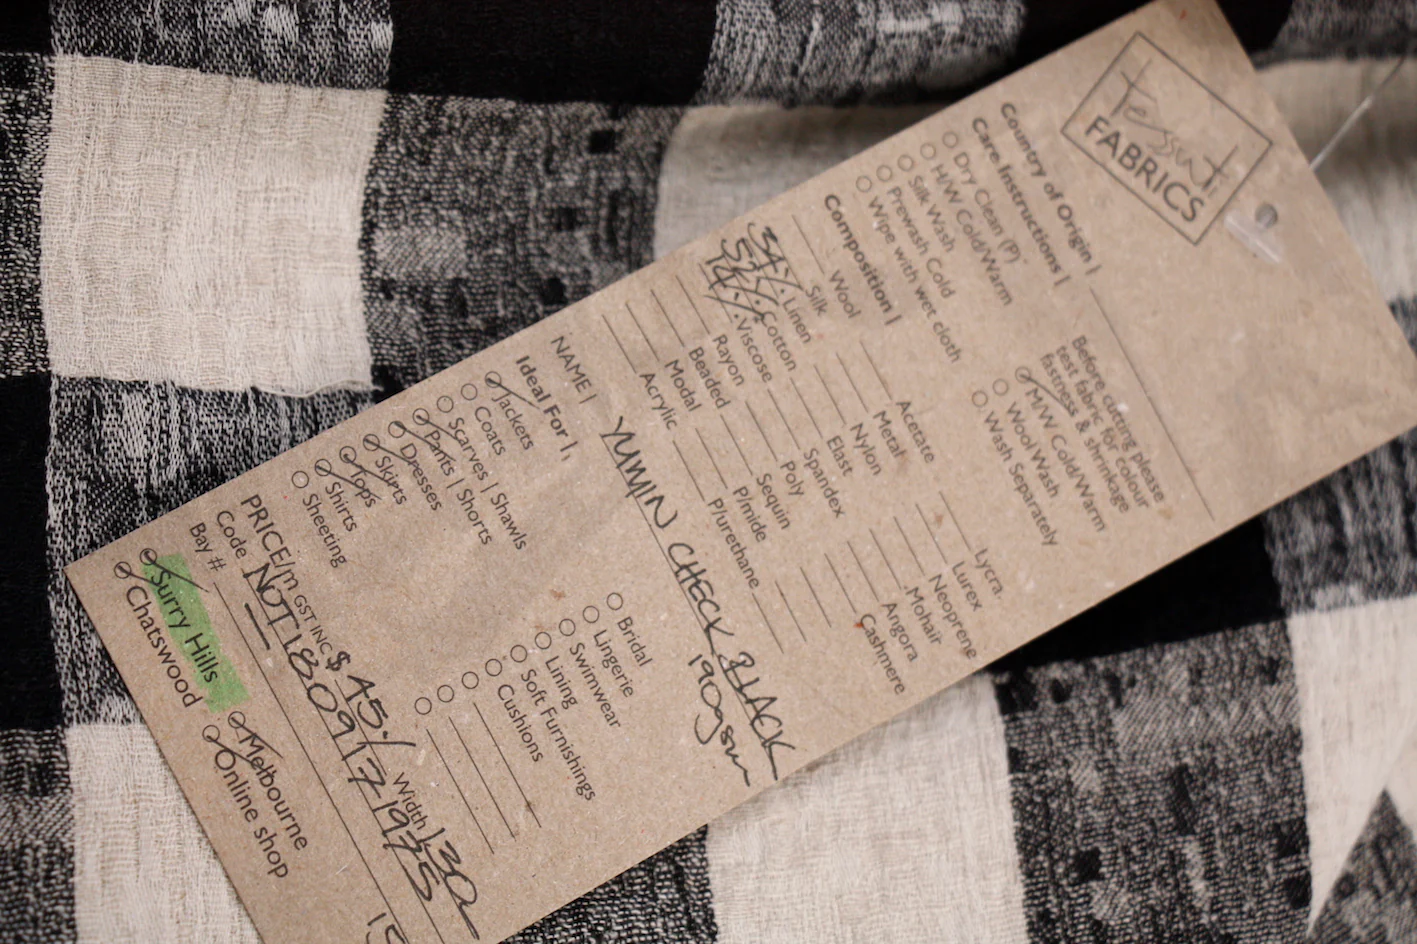 Tessuti
FABRICS
Country of Origin |
Care Instructions |
Dry Clean (P)
H/W Cold/Warm
Silk Wash
Prewash Cold
Wipe with wet cloth
Before cutting please
test fabric for colour
fastness & shrinkage
M/W Cold/Warm
Wool Wash
Wash Separately
Composition |
Wool
Silk
34% Linen
52% Cotton
14% Viscose
Rayon
Beaded
Modal
Acrylic
Acetate
Metal
Nylon
Elast
Spandex
Poly
Sequin
P/mide
P/urethane
Lycra
Lurex
Neoprene
Mohair
Angora
Cashmere
NAME | YUMIN CHECK BLACK
190gsm
Ideal For |
Jackets
Coats
Scarves | Shawls
Pants | Shorts
Dresses
Skirts
Tops
Shirts
Sheeting
Bridal
Lingerie
Swimwear
Lining
Soft Furnishings
Cushions
PRICE/m GST INC $ 45.- Width 130
Code
Bay #
Surry Hills
Chatswood
Melbourne
Online shop